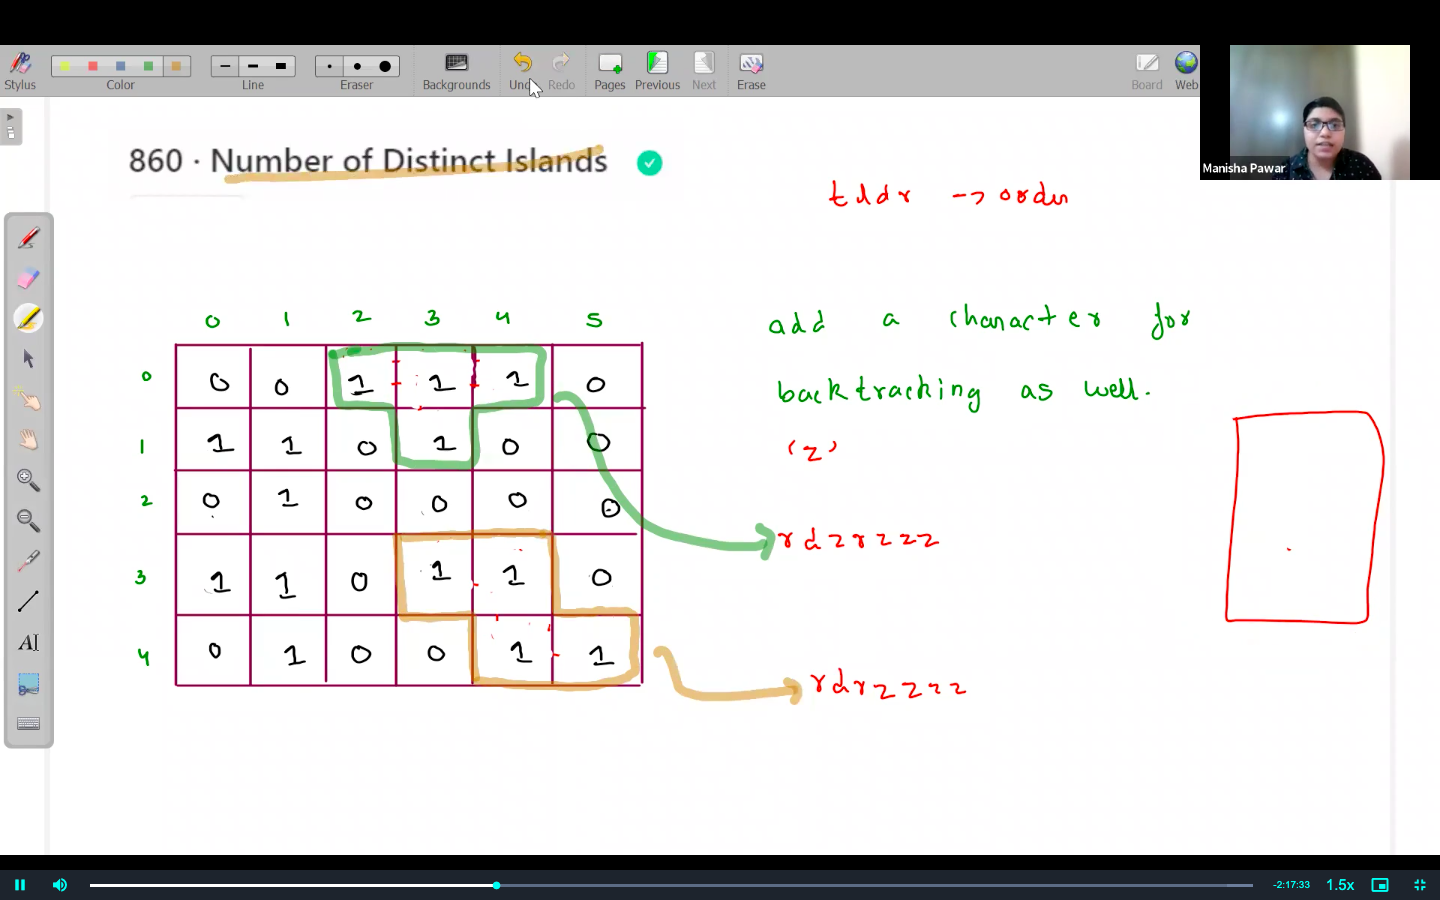 Stylus Color Line Eraser Backgrounds Undo Redo Pages Previous Next Erase Board Web
Manisha Pawar
860 · Number of Distinct Islands
tldr -> order
0 1 2 3 4 5
0 0 0 1 1 1 0
1 1 1 0 1 0 0
2 0 1 0 0 0 0
3 1 1 0 1 1 0
4 0 1 0 0 1 1
add a character for
backtracking as well.
'z'
rdzrzzz
rdrzzzz
AI
-2:17:33 1.5x